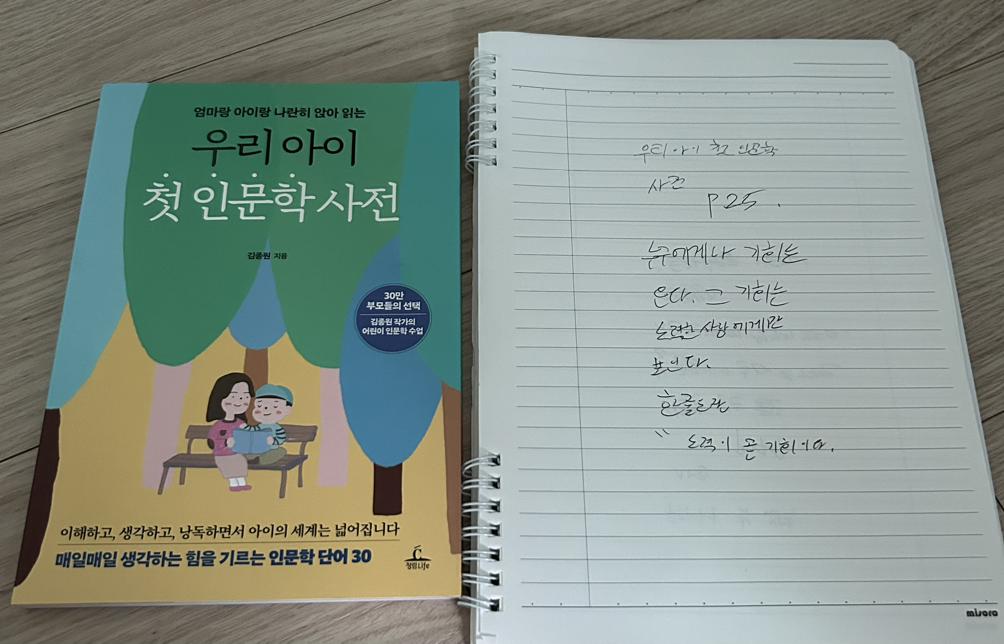 엄마랑 아이랑 나란히 앉아 읽는
우리 아이
첫 인문학 사전
김종원 지음
30만
부모들의 선택
김종원 작가의
어린이 인문학 수업
이해하고, 생각하고, 낭독하면서 아이의 세계는 넓어집니다
매일매일 생각하는 힘을 기르는 인문학 단어 30
청림Life
우리 아이 첫 인문학
사전
P 25.
누구에게나 기회는
온다. 그 기회는
노력한 사람에게만
보인다.
한글도란
" 노력이 곧 기회이다.
misora